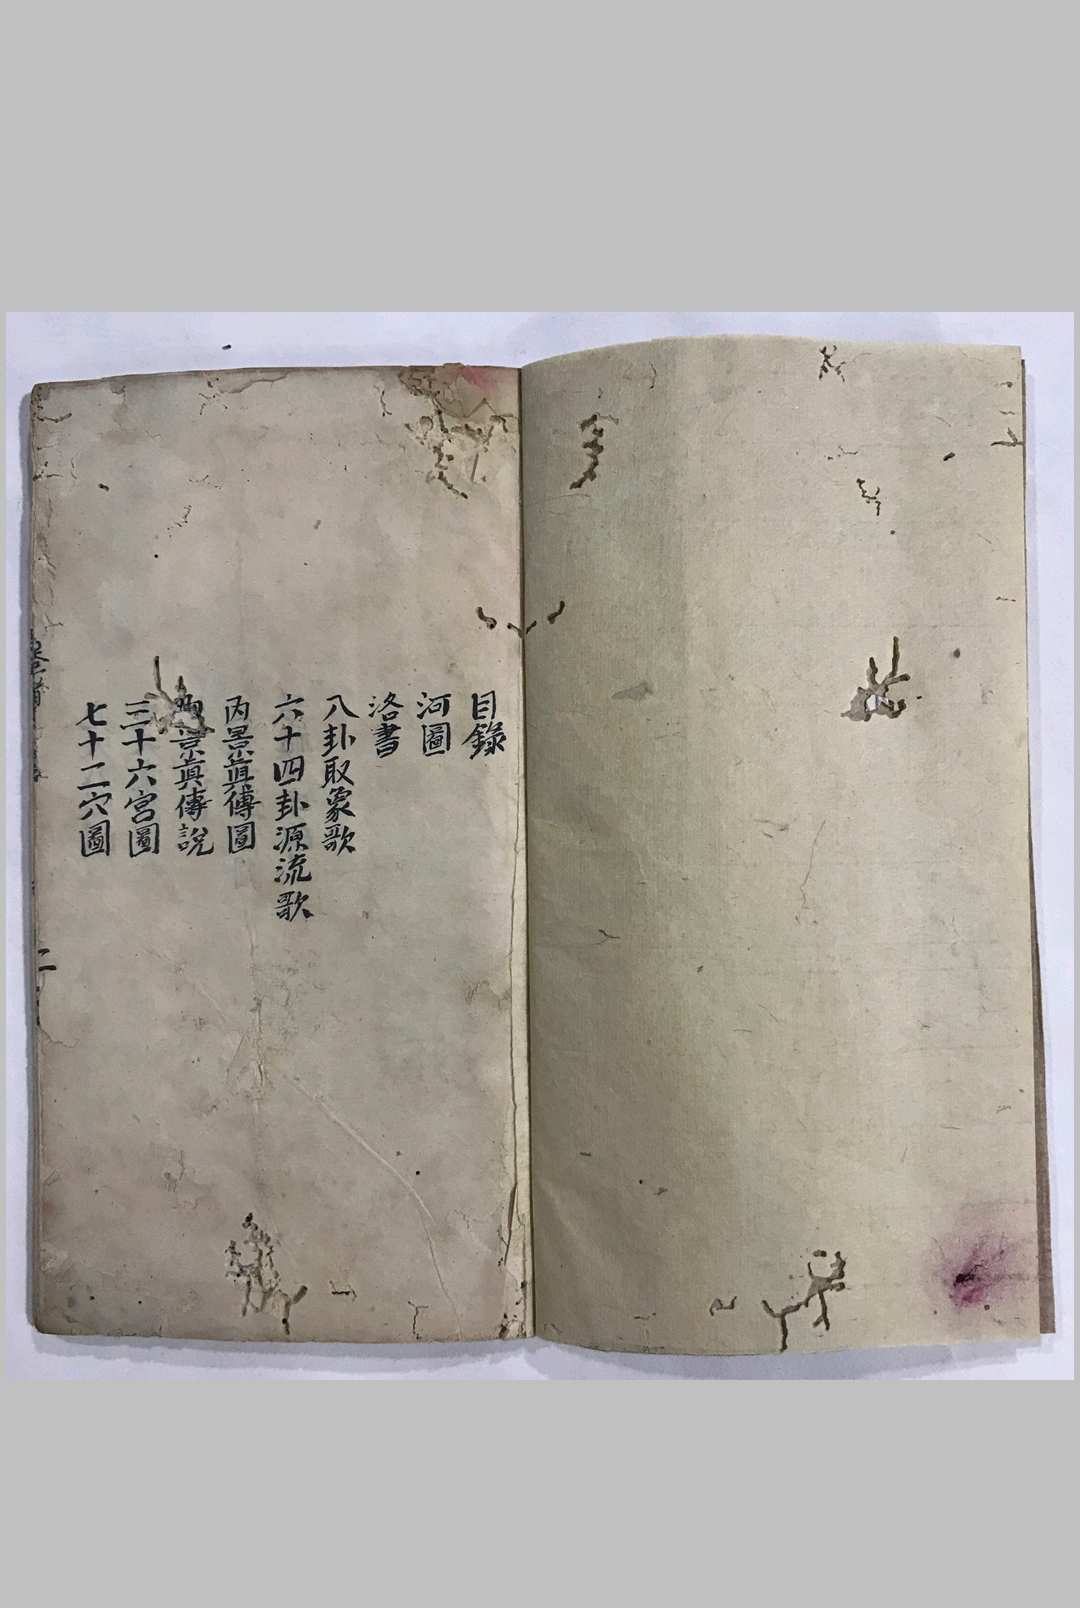 目錄
河圖
洛書
八卦取象歌
六十四卦源流歌
內景眞傳圖
景眞傳說
三十六宮圖
七十二穴圖
二